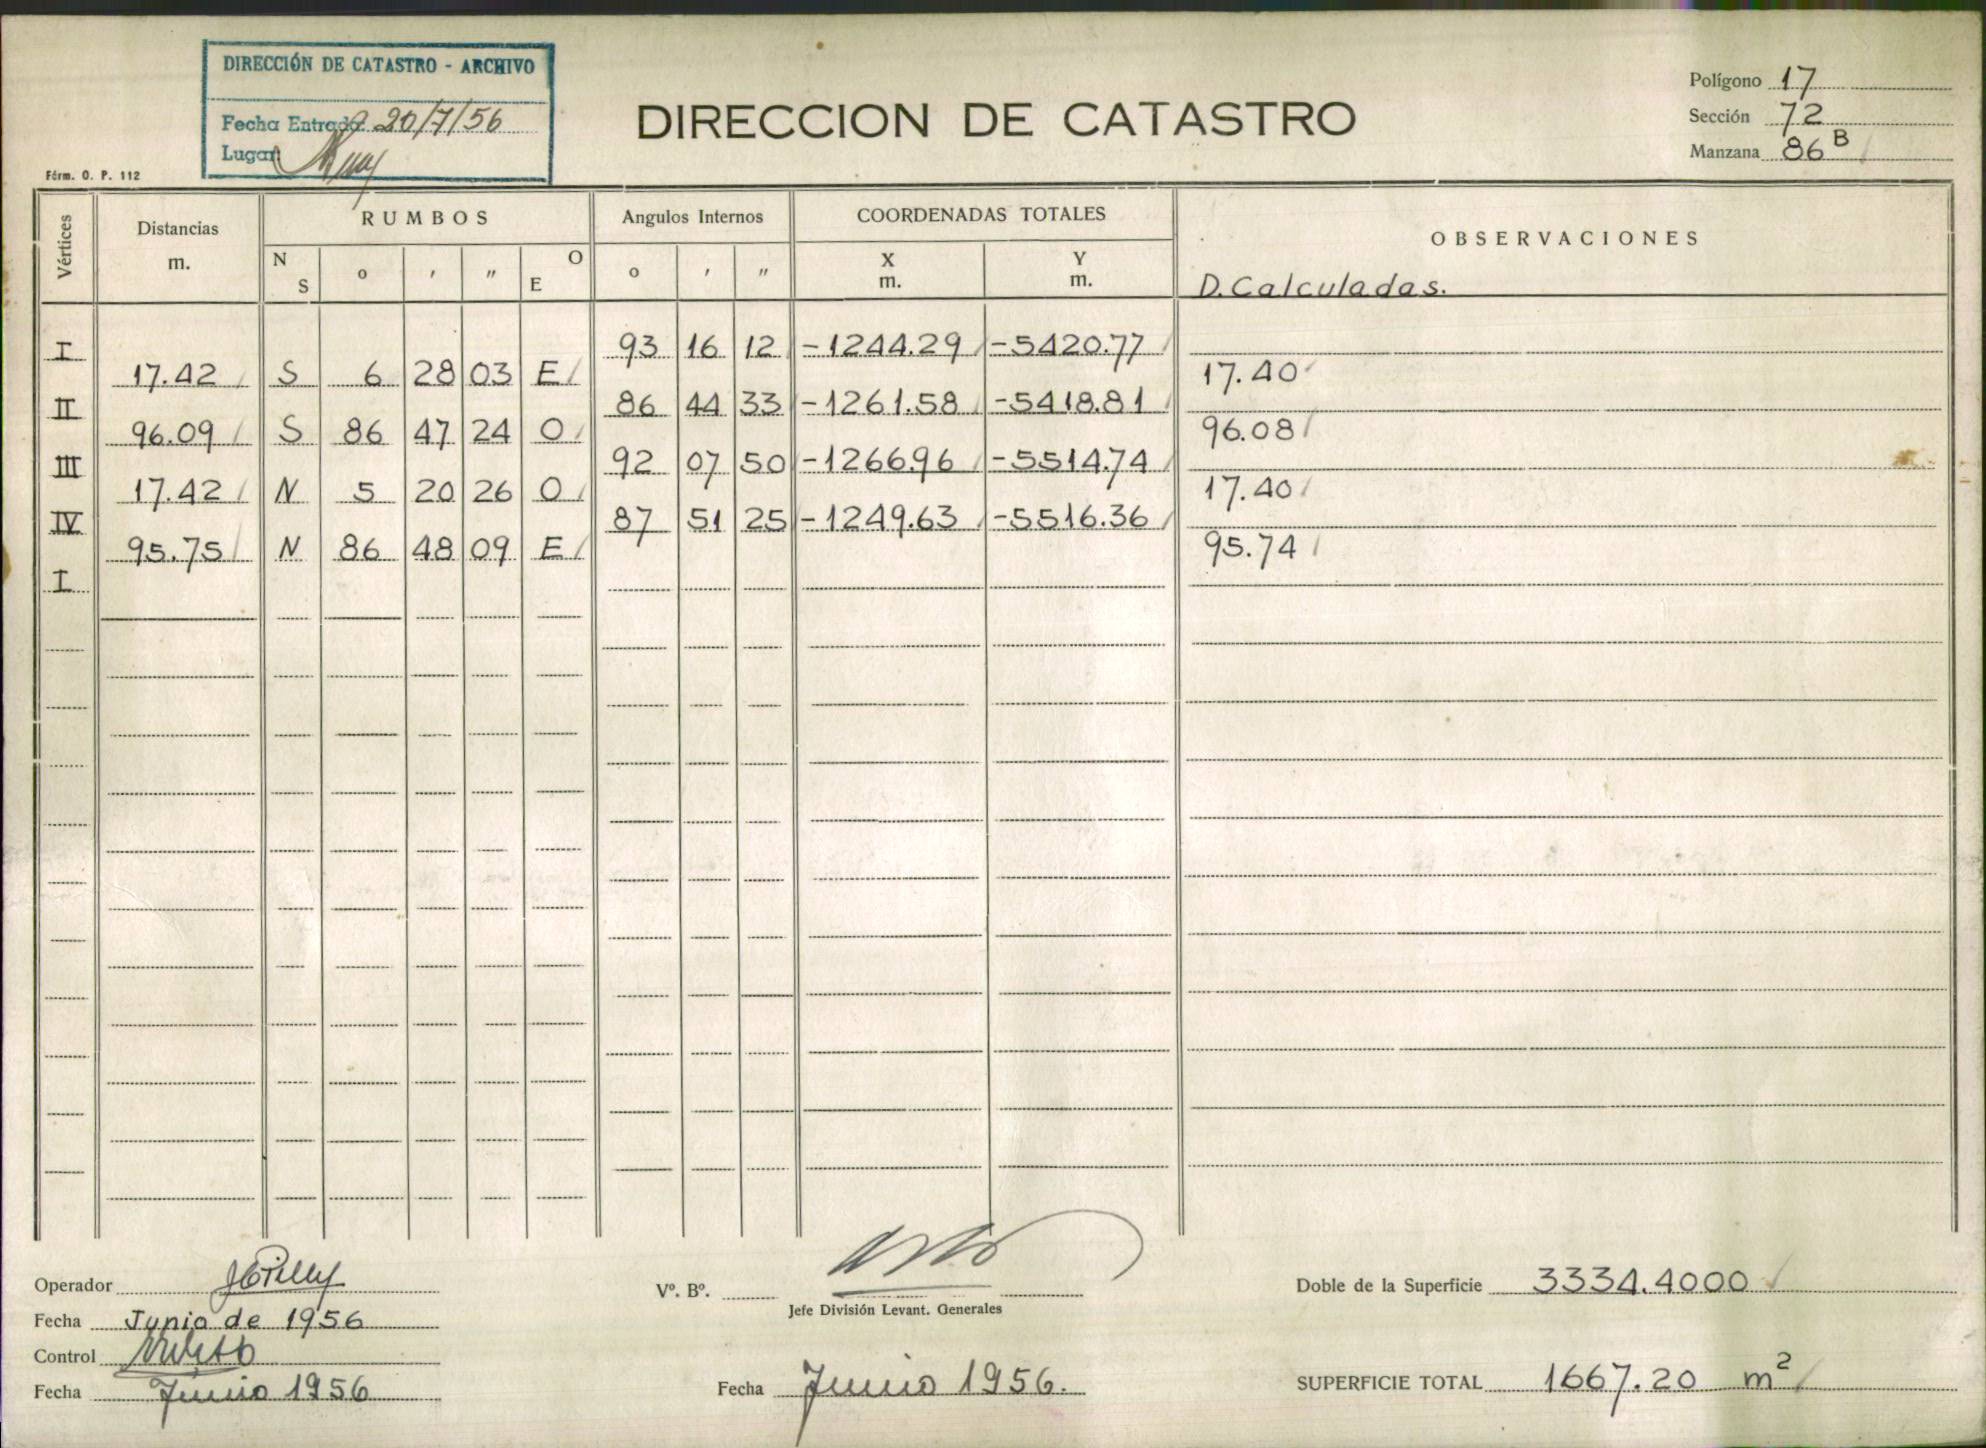 DIRECCIÓN DE CATASTRO - ARCHIVO
Fecha Entrada 20/7/56
Lugar
Fórm. O. P. 112
DIRECCION DE CATASTRO
Polígono 17
Sección 72
Manzana 86 B
Vértices Distancias m. RUMBOS Angulos Internos COORDENADAS TOTALES OBSERVACIONES
N S ° ' " O E ° ' " X m. Y m. D. Calculadas.
I 93 16 12 -1244.29 -5420.77
17.42 S 6 28 03 E 17.40
II 86 44 33 -1261.58 -5418.81
96.09 S 86 47 24 O 96.08
III 92 07 50 -1266.96 -5514.74
17.42 N 5 20 26 O 17.40
IV 87 51 25 -1249.63 -5516.36
95.75 N 86 48 09 E 95.74
I
Operador
Fecha Junio de 1956
Control
Fecha Junio 1956
Vº. Bº.
Jefe División Levant. Generales
Fecha Junio 1956.
Doble de la Superficie 3334.4000
SUPERFICIE TOTAL 1667.20 m²